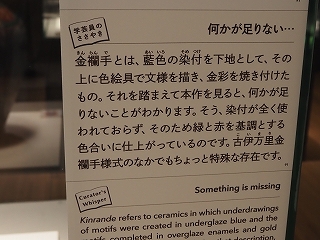 学芸員の
ささやき
何かが足りない…
金襴手とは、藍色の染付を下地として、その
上に色絵具で文様を描き、金彩を焼き付けた
もの。それを踏まえて本作を見ると、何かが足
りないことがわかります。そう、染付が全く使
われておらず、そのため緑と赤を基調とする
色合いに仕上がっているのです。古伊万里金
襴手様式のなかでもちょっと特殊な存在です。
Curator's
Whisper
Something is missing
Kinrande refers to ceramics in which underdrawings
of motifs were created in underglaze blue and the
motifs completed in overglaze enamels and gold
that description,